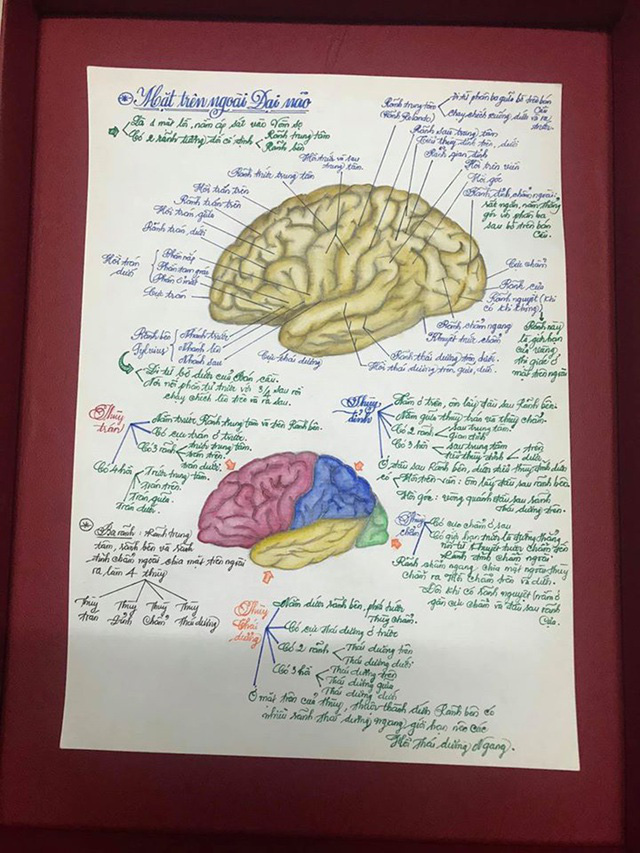 Mặt trên ngoài Đại não
Là 1 mặt lồi, nằm áp sát vào vòm sọ
Có 2 rãnh tường đối cố định
Rãnh trung tâm
Rãnh bên
Rãnh trung tâm
(Rãnh Rolando)
Đi từ phần ba giữa bờ trên bán cầu
chạy chếch xuống dưới và ra trước
Hồi trước và sau
trung tâm
Rãnh trước trung tâm
Hồi trán trên
Rãnh trán trên
Hồi trán giữa
Rãnh trán dưới
Hồi trán
dưới
Phần nắp
Phần tam giác
Phần ổ mắt
Cực trán
Rãnh sau trung tâm
Tiểu thuỳ đỉnh trên, dưới
Rãnh gian đỉnh
Hồi trên viền
Hồi góc
Rãnh đỉnh chẩm ngoài:
rất ngắn, nằm thẳng
góc với phần ba
sau bờ trên bán
cầu.
Cực chẩm
Rãnh cựa
Rãnh nguyệt (khi
có khi không)
Rãnh này
là giới hạn
của vùng
thị giác ở
mặt trên ngoài
Rãnh chẩm ngang
Khuyết trước chẩm
Rãnh thái dương trên, dưới
Hồi thái dương trên, giữa, dưới
Rãnh bên
Sylvius
Nhánh trước
Nhánh lên
Nhánh sau
Cực thái dương
Đi từ bờ dưới của bán cầu.
chạy chếch lên trên và ra sau.
Thuỳ
trán
Nằm trước Rãnh trung tâm và trên Rãnh bên.
Có cực trán ở trước.
Có 3 rãnh
trước trung tâm.
trán trên.
trán dưới.
Có 4 hồi
Trước trung tâm.
Trán trên.
Trán giữa.
Trán dưới.
Thuỳ
đỉnh
Nằm ở trên, ôm lấy đầu sau Rãnh bên.
Nằm giữa thuỳ trán và thuỳ chẩm.
Có 2 rãnh
sau trung tâm.
gian đỉnh
Có 3 hồi
sau trung tâm
tiểu thuỳ đỉnh
trên
dưới.
Ở đầu sau Rãnh bên, dưới tiểu thuỳ đỉnh dưới
có
Hồi trên viền: ôm lấy đầu sau rãnh bên
Hồi góc: vùng quanh đầu sau rãnh
thái dương trên.
Ba rãnh: Rãnh trung
tâm, rãnh bên và rãnh
đỉnh chẩm ngoài chia mặt trên ngoài
ra làm 4 thuỳ
Thuỳ
trán
Thuỳ
Đỉnh
Thuỳ
Chẩm
Thuỳ
Thái dương
Thuỳ
chẩm
Có cực chẩm ở sau
Có giới hạn trước là đường thẳng
nối từ khuyết trước chẩm đến
Rãnh đỉnh chẩm ngoài
Rãnh chẩm ngang chia mặt ngoài thuỳ
chẩm ra Hồi chẩm trên và dưới.
Đôi khi có Rãnh nguyệt nằm ở
gần cực chẩm và đầu sau rãnh
cựa.
Thuỳ
thái
dương
Nằm dưới rãnh bên, phía trước
thuỳ chẩm.
Có cực thái dương ở trước
Có 2 rãnh
Thái dương trên
Thái dương dưới
Có 3 hồi
Thái dương trên
Thái dương giữa
Thái dương dưới
Ở mặt trên của thuỳ, thuộc thành dưới Rãnh bên có
nhiều rãnh thái dương ngang giới hạn nên các
Hồi Thái dương Ngang.